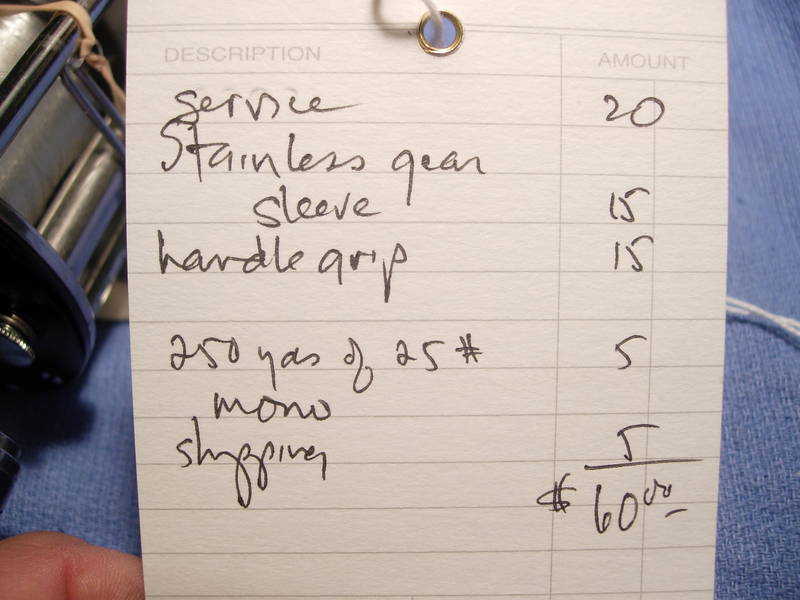 DESCRIPTION AMOUNT
service 20
Stainless gear
sleeve 15
handle grip 15
250 yds of 25 # 5
mono
shipping 5
$ 60.00